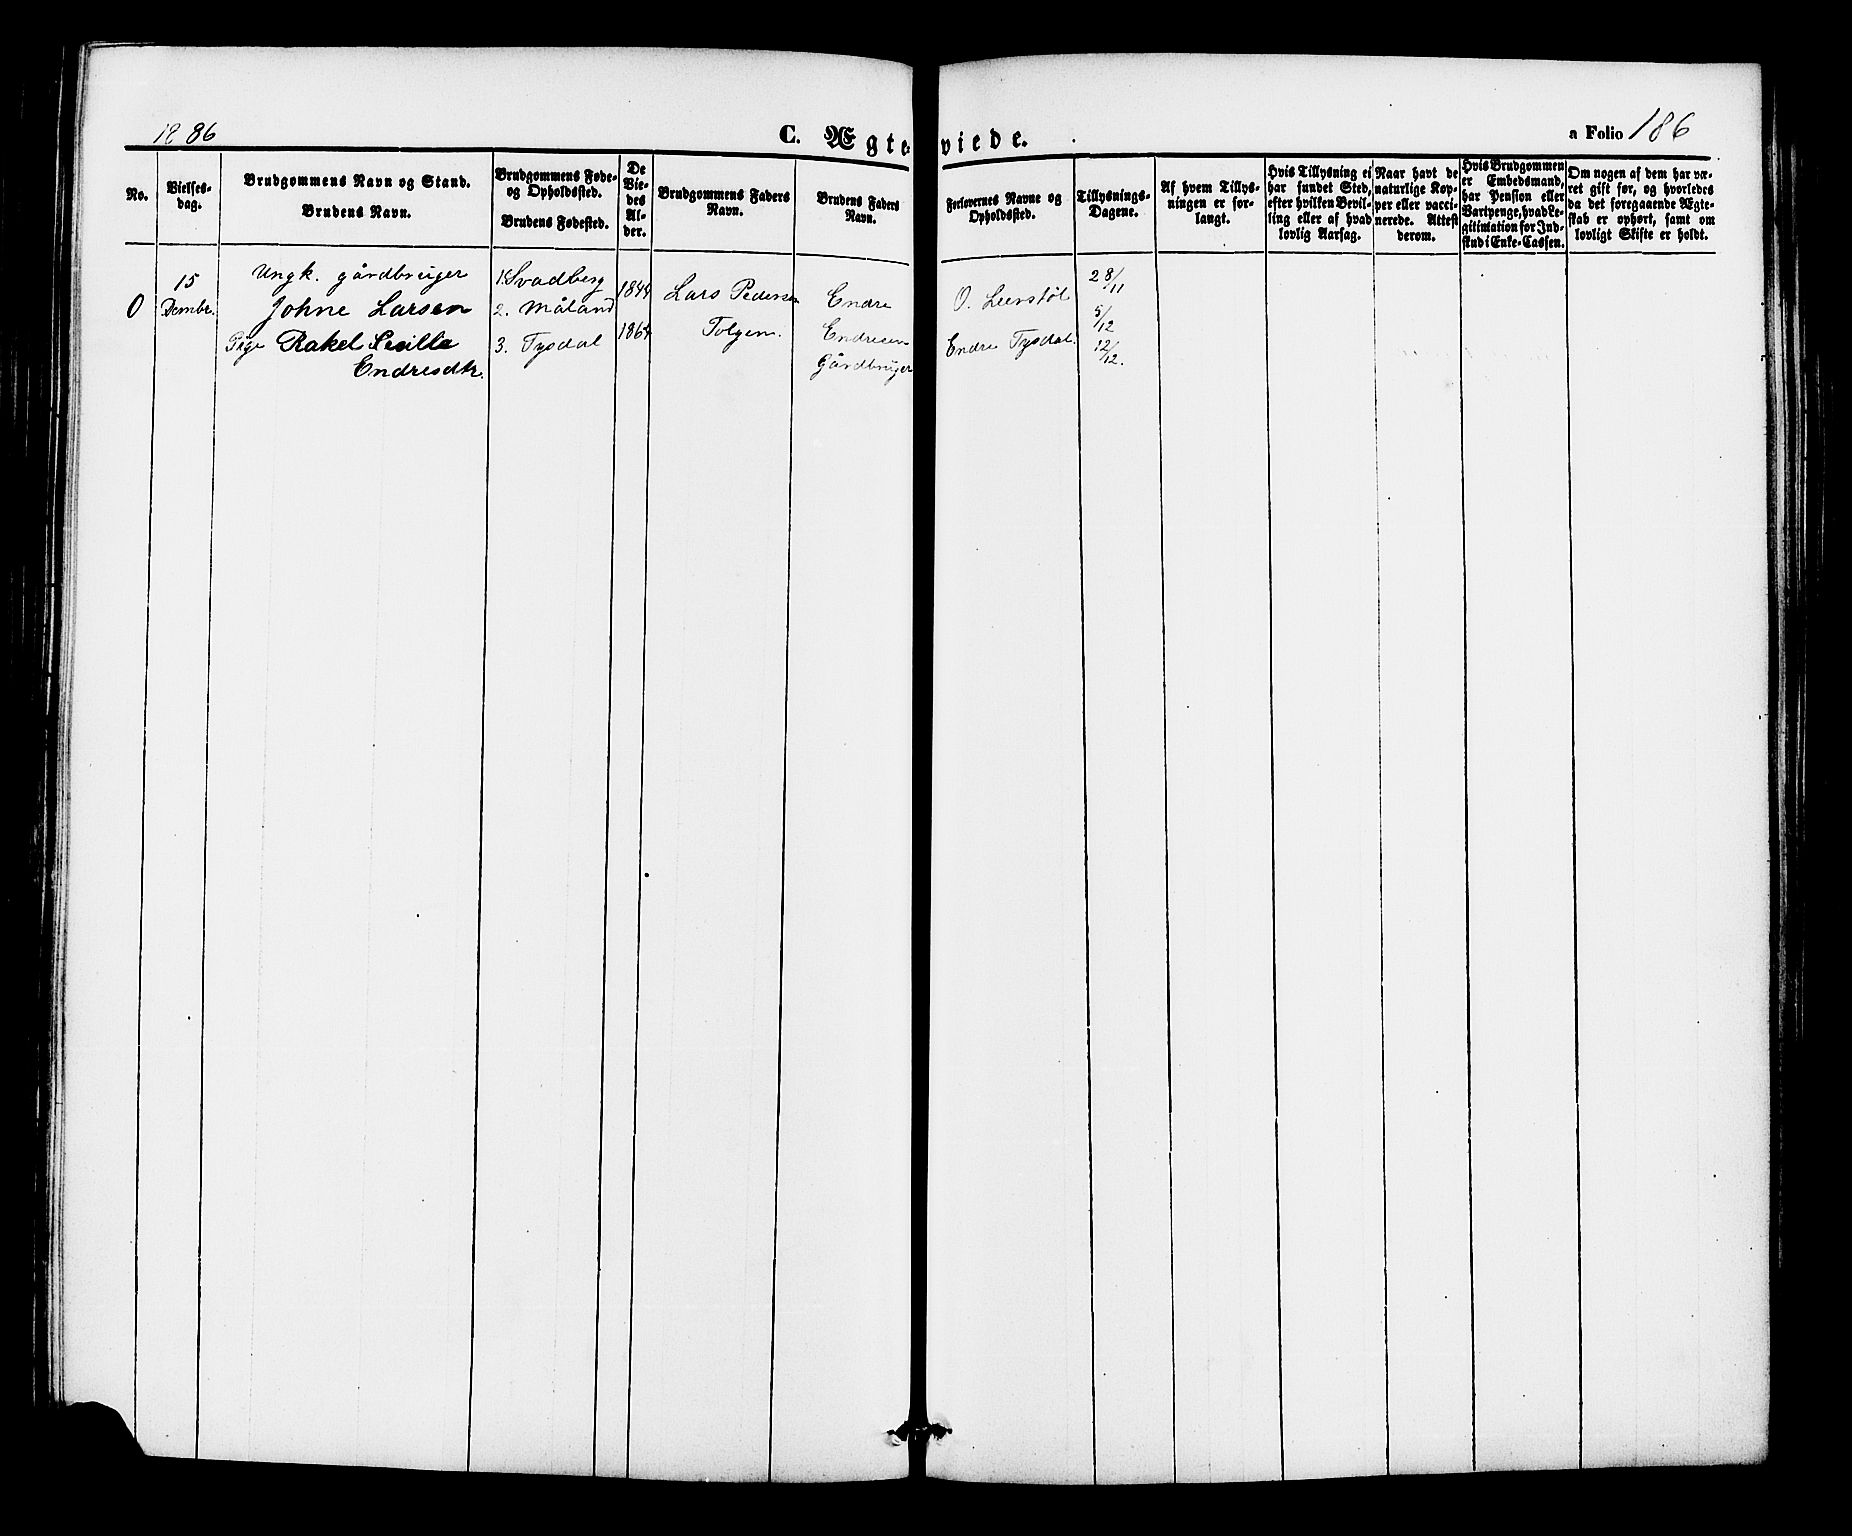 1886
C. Ægteviede.
a Folio 186
No.
Vielses-
dag.
Brudgommens Navn og Stand.
Brudens Navn.
Brudgommens Føde-
og Opholdssted.
Brudens Fødested.
De
Vie-
des
Al-
der.
Brudgommens Faders
Navn.
Brudens Faders
Navn.
Forlovernes Navne og
Opholdssted.
Tillysnings-
Dagene.
Af hvem Tillys-
ningen er for-
langt.
Hvis Tillysning ei
har fundet Sted,
efter hvilken Bevil-
ling eller af hvad
lovlig Aarsag.
Naar havt de
naturlige Kop-
per eller vacci-
nerede. Attest
derom.
Hvis Brudgommen
er Embedsmand,
har Pension eller
Vartpenge, hvad Le-
gitimation for Ind-
skud i Enke-Cassen.
Om nogen af dem har væ-
ret gift før, og hvorledes
da det foregaaende Ægte-
skab er ophørt, samt om
lovligt Skifte er holdt.
0
15
Dembr.
Ungk. gårdbruger
Johne Larsen
Pige Rakel Sesille
Endresdtr.
1. Svadberg
2. Måland
3. Tysdal
1844
1864
Lars Pedersen
Tolgen.
Endre
Endresen
Gårdbruger
O. Leerstøl
Endre Tysdal.
28/11
5/12
12/12.